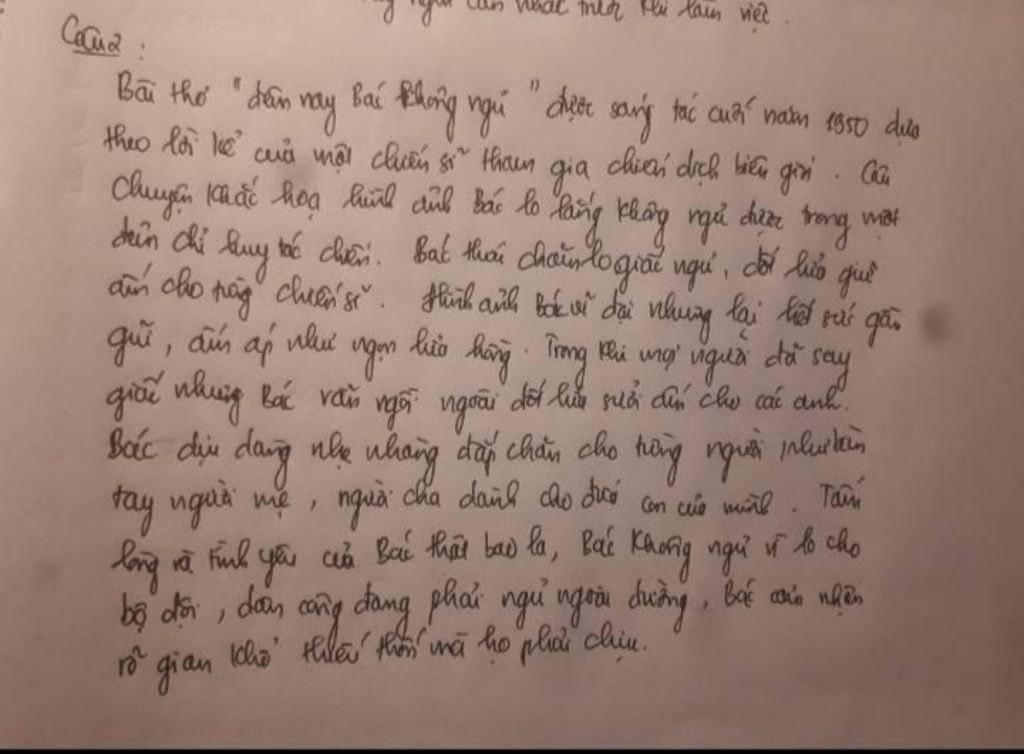 cần nhất trước khi làm việc.
Câu 2 :
Bài thơ "đêm nay Bác không ngủ" được sáng tác cuối năm 1950 dựa
theo lời kể của một chiến sĩ tham gia chiến dịch biên giới. Câu
chuyện khắc hoạ hình ảnh Bác lo lắng không ngủ được trong một
đêm chỉ huy tác chiến. Bác thái chăm lo giấc ngủ, đốt lửa giữ
ấm cho từng chiến sĩ. Hình ảnh Bác vĩ đại nhưng lại hết sức gần
gũi, ấm áp như ngọn lửa hồng. Trong khi mọi người đã say
giấc nhưng Bác vẫn ngồi ngoài đốt lửa sưởi ấm cho các anh.
Bác dịu dàng nhẹ nhàng đắp chăn cho từng người như bàn
tay người mẹ, người cha dành cho đứa con của mình. Tấm
lòng và tình yêu của Bác thật bao la, Bác không ngủ vì lo cho
bộ đội, dân công đang phải ngủ ngoài đường, Bác cảm nhận
rõ gian khổ thiếu thốn mà họ phải chịu.